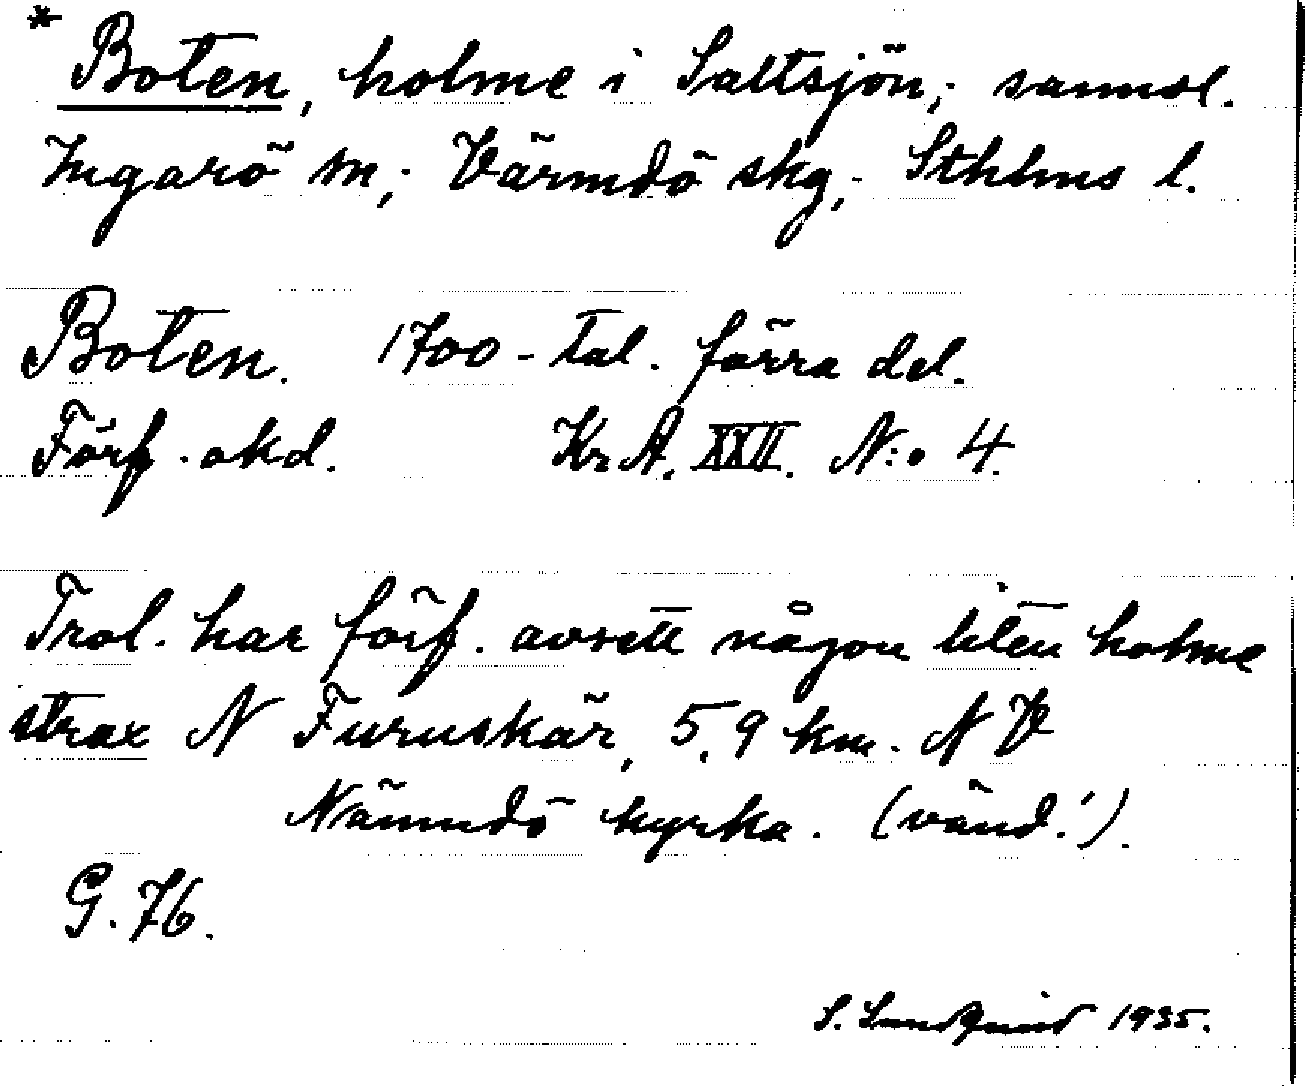 * Boten, holme i Saltsjön; sannol.
Ingarö sn; Värmdö skg; Sthlms l.
Boten. 1700-tal. förra del.
Förf. okd. Kr A. XXII. N:o 4.
Trol. har förf. avsett någon liten holme
strax N Furuskär, 5,9 km. N V
Nämndö kyrka. (vänd!).
G. 76.
S. Lundquist 1935.